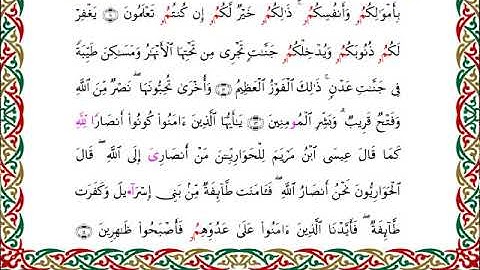 بِأَمْوَٰلِكُمُۥ وَأَنفُسِكُمُۥ ۚ ذَٰلِكُمُۥ خَيْرٌ لَّكُمُۥ إِن كُنتُمُۥ تَعْلَمُونَ ۝ يَغْفِرْ
لَكُمُۥ ذُنُوبَكُمُۥ وَيُدْخِلْكُمُۥ جَنَّٰتٍ تَجْرِى مِن تَحْتِهَا ٱلْأَنْهَٰرُ وَمَسَٰكِنَ طَيِّبَةً
فِى جَنَّٰتِ عَدْنٍ ۚ ذَٰلِكَ ٱلْفَوْزُ ٱلْعَظِيمُ ۝ وَأُخْرَىٰ تُحِبُّونَهَا ۖ نَصْرٌ مِّنَ ٱللَّهِ
وَفَتْحٌ قَرِيبٌ ۗ وَبَشِّرِ ٱلْمُومِنِينَ ۝ يَٰٓأَيُّهَا ٱلَّذِينَ ءَامَنُوا۟ كُونُوٓا۟ أَنصَارًا لِلَّهِ
كَمَا قَالَ عِيسَى ٱبْنُ مَرْيَمَ لِلْحَوَارِيِّـۧنَ مَنْ أَنصَارِىَ إِلَى ٱللَّهِ ۖ قَالَ
ٱلْحَوَارِيُّونَ نَحْنُ أَنصَارُ ٱللَّهِ ۖ فَـَٔامَنَت طَّآئِفَةٌ مِّنۢ بَنِىٓ إِسْرَآءِيلَ وَكَفَرَت
طَّآئِفَةٌ ۖ فَأَيَّدْنَا ٱلَّذِينَ ءَامَنُوا۟ عَلَىٰ عَدُوِّهِمُۥ فَأَصْبَحُوا۟ ظَٰهِرِينَ ۝